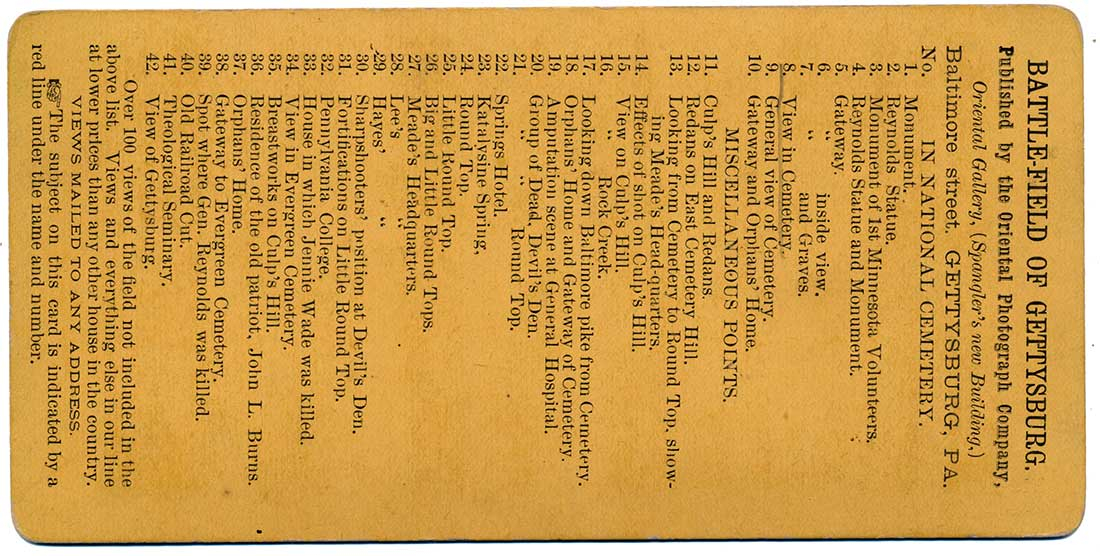 BATTLE-FIELD OF GETTYSBURG.
Published by the Oriental Photograph Company,
Oriental Gallery, (Spangler's new Building,)
Baltimore street, GETTYSBURG, PA.
No. IN NATIONAL CEMETERY.
1. Monument.
2. Reynolds Statue.
3. Monument of 1st Minnesota Volunteers.
4. Reynolds Statue and Monument.
5. Gateway.
6. “ inside view.
7. “ and Graves.
8. View in Cemetery.
9. General view of Cemetery.
10. Gateway and Orphans' Home.
MISCELLANEOUS POINTS.
11. Culp's Hill and Redans.
12. Redans on East Cemetery Hill.
13. Looking from Cemetery to Round Top, show-
ing Meade's Head-quarters.
14. Effects of shot on Culp's Hill.
15. View on Culp's Hill.
16. “ Rock Creek.
17. Looking down Baltimore pike from Cemetery.
18. Orphans' Home and Gateway of Cemetery.
19. Amputation scene at General Hospital.
20. Group of Dead, Devil's Den.
21. “ “ Round Top.
22. Springs Hotel.
23. Katalysine Spring,
24. Round Top.
25. Little Round Top.
26. Big and Little Round Tops.
27. Meade's Headquarters.
28. Lee's “
29. Hayes' “
30. Sharpshooters' position at Devil's Den.
31. Fortifications on Little Round Top.
32. Pennylvania College.
33. House in which Jennie Wade was killed.
34. View in Evergreen Cemetery.
35. Breastworks on Culp's Hill.
36. Residence of the old patriot, John L. Burns.
37. Orphans' Home.
38. Gateway to Evergreen Cemetery.
39. Spot where Gen. Reynolds was killed.
40. Old Railroad Cut.
41. Theological Seminary.
42. View of Gettysburg.
Over 100 views of the field not included in the
above list. Views and everything else in our line
at lower prices than any other house in the country.
VIEWS MAILED TO ANY ADDRESS.
☞The subject on this card is indicated by a
red line under the name and number.